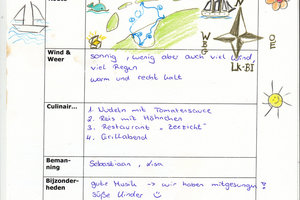 Route
W
OE
B
G
LK-BI
Wind &
Weer
sonnig, wenig aber auch viel Wind,
viel Regen
warm und recht kalt
Culinair...
1. Nudeln mit Tomatensauce
2. Reis mit Hähnchen
3. Restaurant "Seezicht"
4. Grillabend
Beman-
ning
Sebastiaan, Lisa
Bijzonder-
heden
gute Musik -> wir haben mitgesungen!
süße Kinder